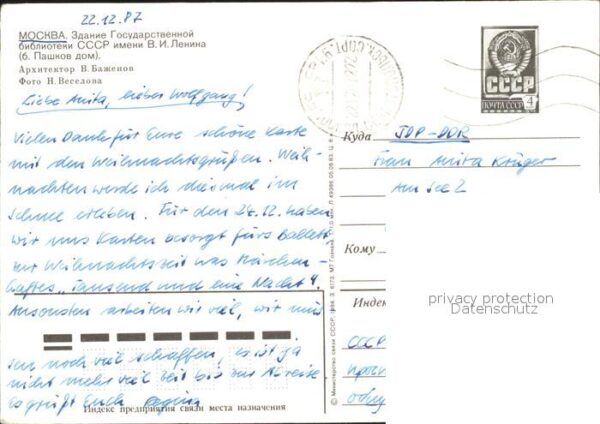 22.12.87
МОСКВА. Здание Государственной
библиотеки СССР имени В. И. Ленина
(б. Пашков дом).
Архитектор В. Баженов
Фото Н. Веселова
Liebe Anita, lieber Wolfgang!
Vielen Dank für Eure schöne Karte
mit den Weihnachtsgrüßen. Weih-
nachten werde ich diesmal im
Schnee erleben. Für den 24.12. haben
wir uns Karten besorgt fürs Ballett,
zur Weihnachtszeit was Märchen-
haftes „Tausend und eine Nacht“.
Ansonsten arbeiten wir viel, wir müs-
sen noch viel schaffen, es ist ja
nicht mehr viel Zeit bis zur Abreise
Es grüßt Euch Regina
Индекс предприятия связи места назначения
© Министерство связи СССР, 1984.
СССР
ПОЧТА СССР
4
Куда
DDR
Frau Anita Krüger
Am See 2
Кому
Индекс
privacy protection
Datenschutz
СССР